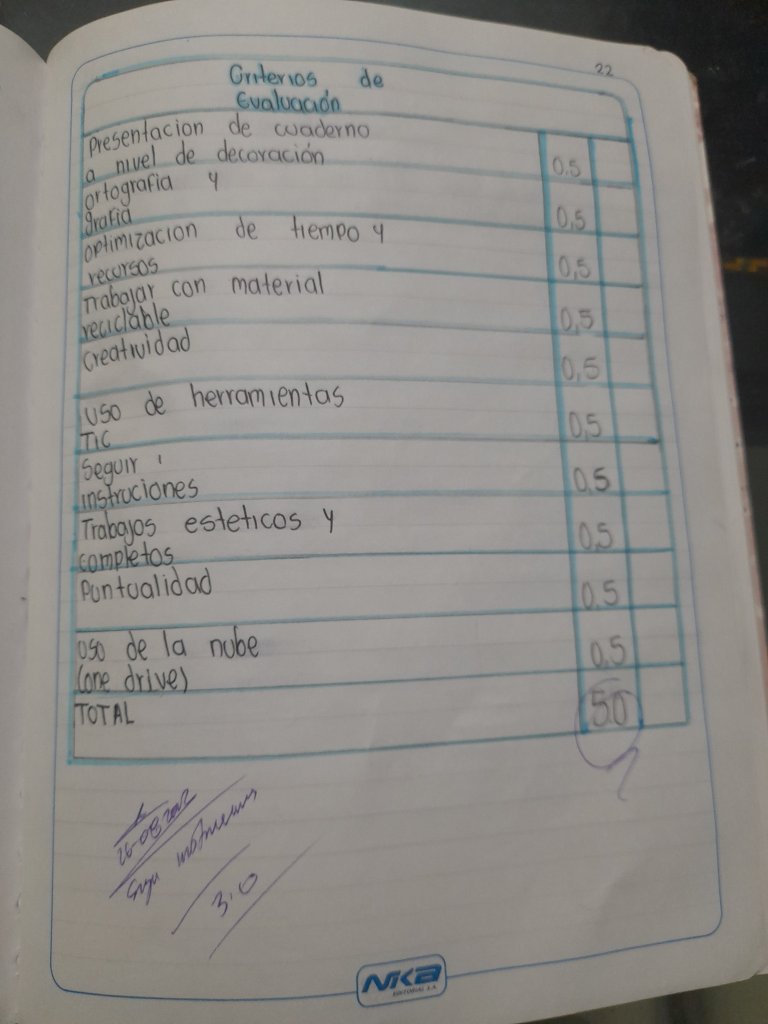 22
Criterios de
Evaluación
Presentacion de cuaderno
a nivel de decoración
0.5
ortografia y
grafia
0,5
optimizacion de tiempo y
recursos
0,5
Trabajar con material
reciclable
0,5
Creatividad
0,5
Uso de herramientas
TIC
0,5
Seguir
instruciones
0.5
Trabajos esteticos y
completos
0.5
Puntualidad
0.5
Uso de la nube
(one drive)
0.5
TOTAL
5.0
3.0
NKB
EDITORIAL S.A.